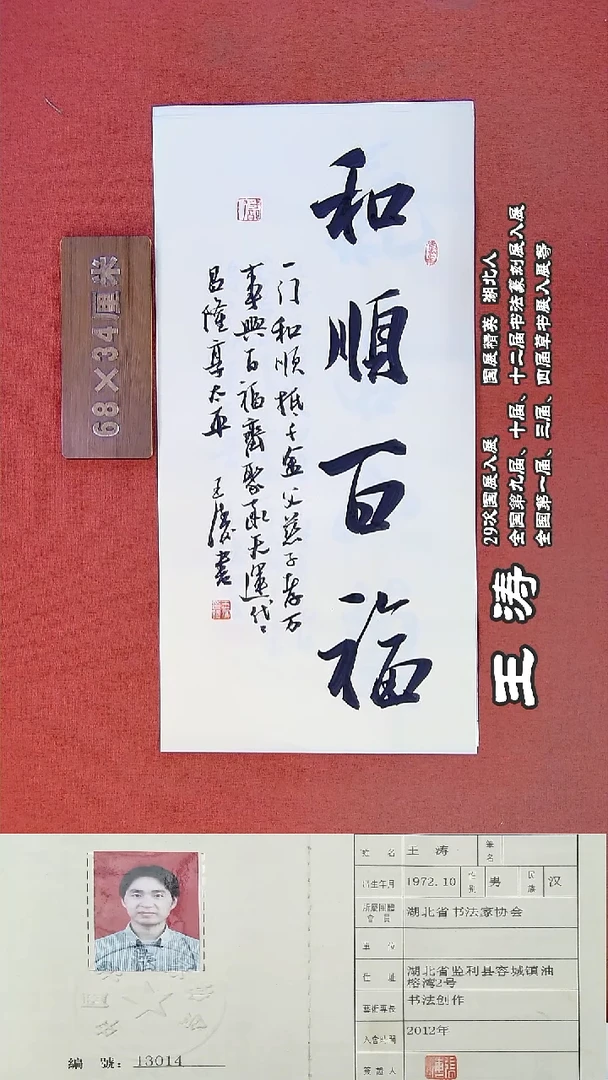 和順百福
一门和顺抵千金父慈子孝万
事興百福齊聚承天運代代
昌隆享太平
王涛書
68×34厘米
王涛
29次国展入展 国展精英 湖北人
全国第九届、十届、十二届书法篆刻展入展
全国第一届、三届、四届草书展入展等
編 號：13014
姓 名 王 涛 筆 名
出生年月 1972.10 性 别 男 民 族 汉
所屬團體 會 員 湖北省书法家协会
單 位
住 址 湖北省监利县容城镇油
榨湾2号
藝術專長 书法创作
入會時間 2012年
簽證人